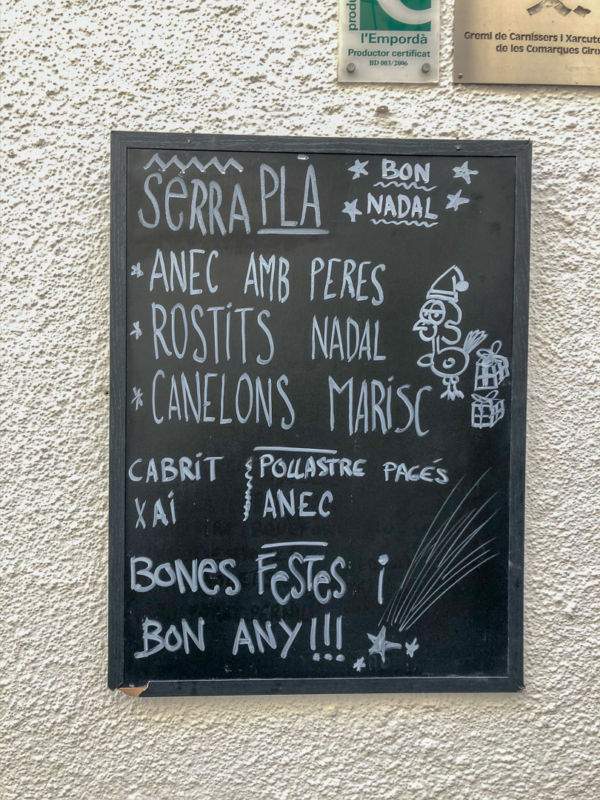 produ
l'Empordà
Productor certificat
BD 003/2006
Gremi de Carnissers i Xarcute
de les Comarques Giro
SERRA PLA
BON
NADAL
* ANEC AMB PERES
* ROSTITS NADAL
* CANELONS MARISC
CABRIT POLLASTRE PAGÉS
XAI ANEC
BONES FESTES i
BON ANY!!!